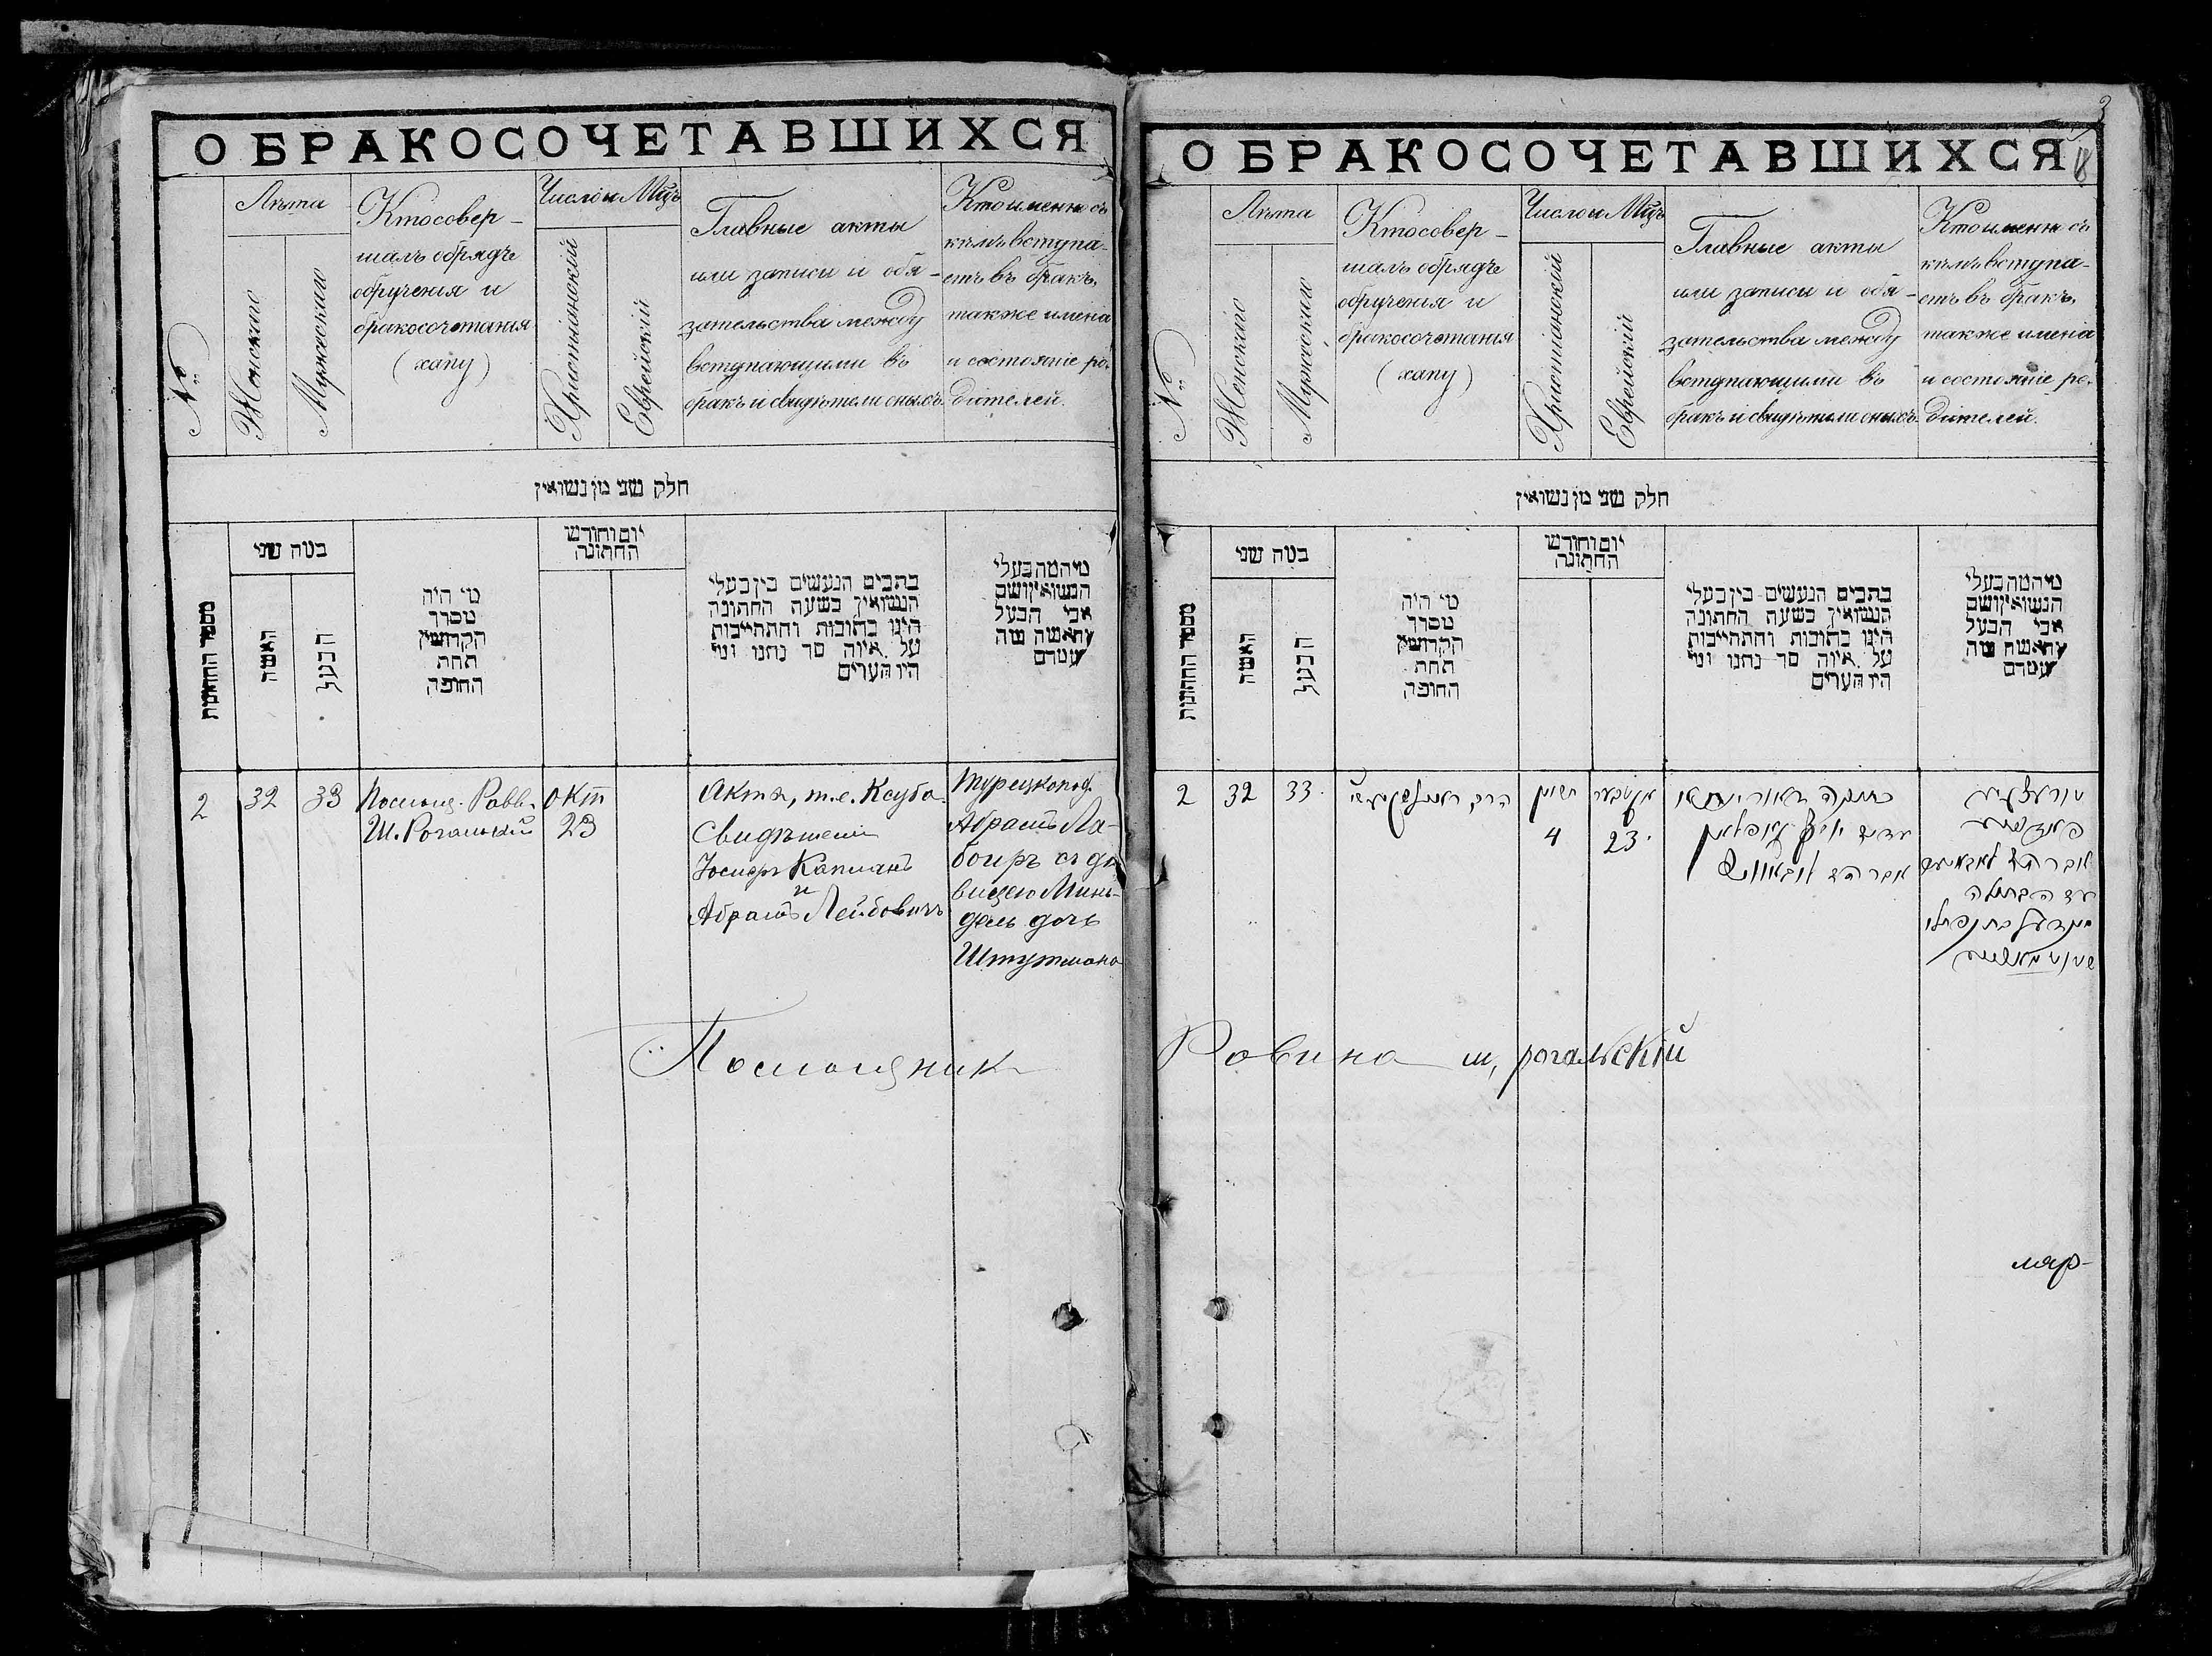 О БРАКОСОЧЕТАВШИХСЯ
№
Лѣта
Женскаго
Мужескаго
Кто совер-
шалъ обрядъ
обрученія и
бракосочетания
(хапу)
Число и Мцъ
Христіанскій
Еврейскій
Главные акты
или записи и обя-
зательства между
вступающими въ
бракъ и свидѣтели оныхъ.
Кто именно съ
кѣмъ вступа-
етъ въ бракъ,
также имена
и состояніе ро-
дителей.
חלק שני מן נשואין
מספר החתונות
כמה שני
האשה
הבעל
מי היה
מסדר
הקדושין
תחת
החופה
יום וחודש
החתונה
כתבים הנעשים בין בעלי
הנשואין בשעה החתונה
היינו כתובות והתחייבות
על איזה סך נתנו ומי
היו העדים
מי המה בעלי
הנשואין ושם
אבי הבעל
והאשה מה
מעמדם
2
32
33
Помощ. Равв.
Ш. Рогальскій
Окт
23
Актъ, т.е. Ксуба.
Свидѣтели
Іосифъ Капланъ
и
Абрамъ Лейбовичъ
Турецкопод.
Абрамъ Ла-
боиръ съ дѣ-
вицею Минь-
дель дочь
Штутмана
Помощник
О БРАКОСОЧЕТАВШИХСЯ
3
18
№
Лѣта
Женскаго
Мужескаго
Кто совер-
шалъ обрядъ
обрученія и
бракосочетания
(хапу)
Число и Мцъ
Христіанскій
Еврейскій
Главные акты
или записи и обя-
зательства между
вступающими въ
бракъ и свидѣтели оныхъ.
Кто именно съ
кѣмъ вступа-
етъ въ бракъ,
также имена
и состояніе ро-
дителей.
חלק שני מן נשואין
מספר החתונות
כמה שני
האשה
הבעל
מי היה
מסדר
הקדושין
תחת
החופה
יום וחודש
החתונה
כתבים הנעשים בין בעלי
הנשואין בשעה החתונה
היינו כתובות והתחייבות
על איזה סך נתנו ומי
היו העדים
מי המה בעלי
הנשואין ושם
אבי הבעל
והאשה מה
מעמדם
2
32
33
הרב
חשון
4
אקטבער
23
כתובה
קאפלאן
אברהם לובאוויץ
אברהם
עם הבתולה
מינדעל בת נפתלי
Равина ш, рогальскій
мар-